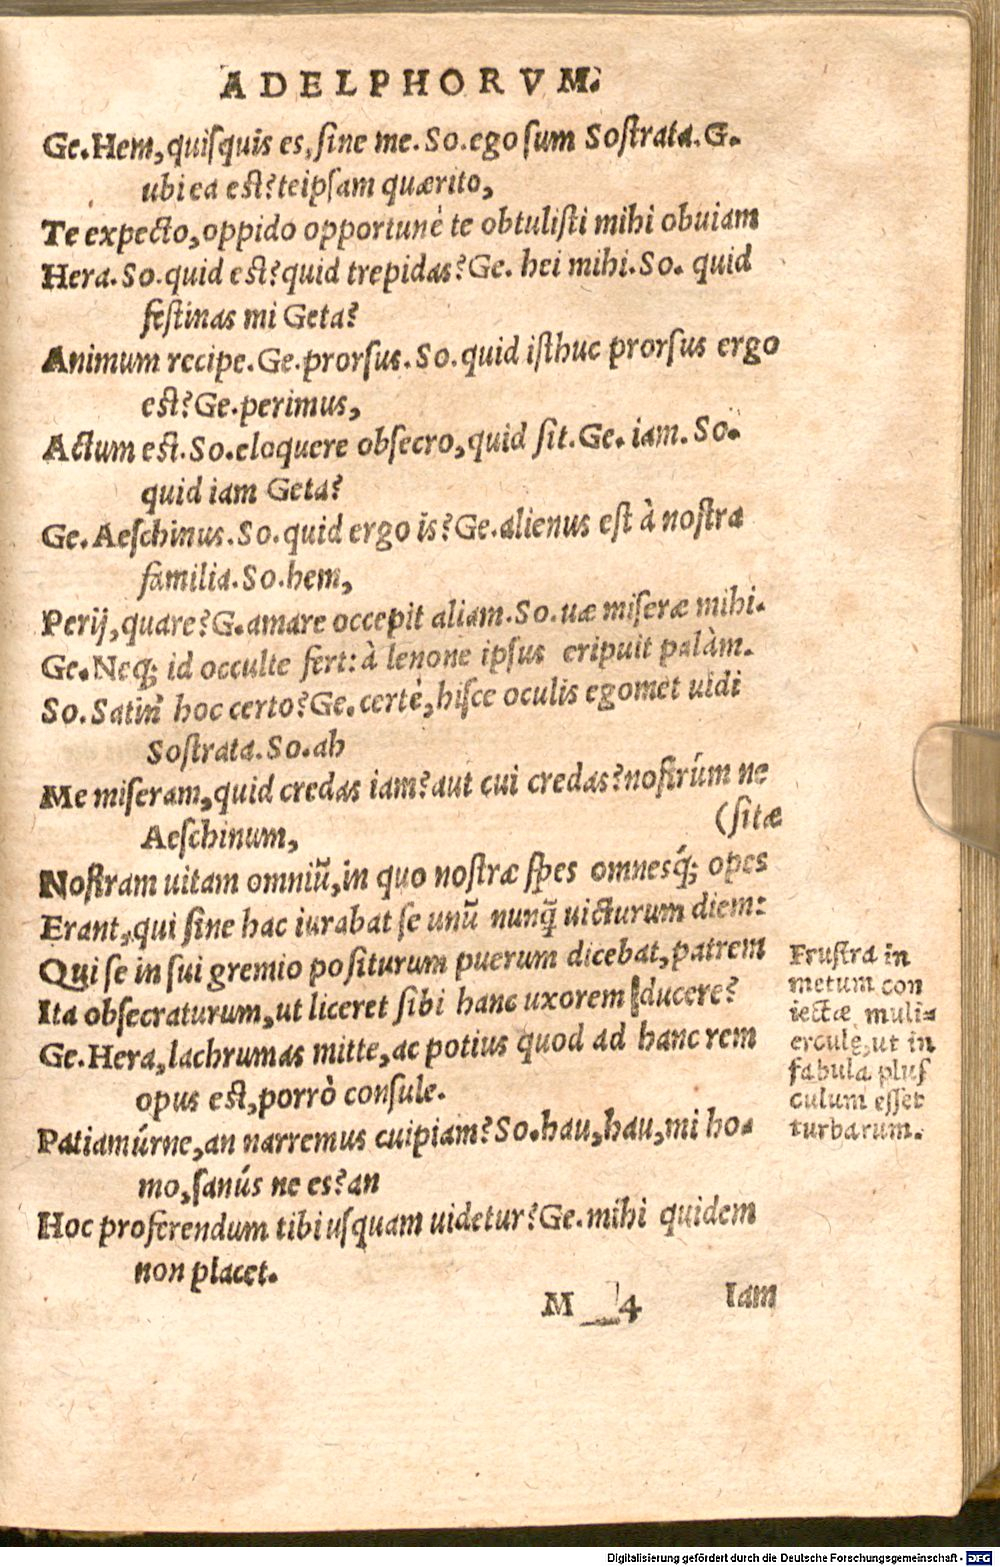 ADELPHORVM.
Ge. Hem, quisquis es, sine me. So. ego sum Sostrata. G.
ubi ea est? teipsam quærito,
Te expecto, oppido opportunè te obtulisti mihi obuiam
Hera. So. quid est? quid trepidas? Ge. hei mihi. So. quid
festinas mi Geta?
Animum recipe. Ge. prorsus. So. quid isthuc prorsus ergo
est? Ge. perimus,
Actum est. So. eloquere obsecro, quid sit. Ge. iam. So.
quid iam Geta?
Ge. Aeschinus. So. quid ergo is? Ge. alienus est à nostra
familia. So. hem,
Perij, quare? G. amare occepit aliam. So. uæ miseræ mihi.
Ge. Neq; id occulte fert: à lenone ipsus eripuit palàm.
So. Satiñ hoc certo? Ge. certè, hisce oculis egomet uidi
Sostrata. So. ah
Me miseram, quid credas iam? aut cui credas? nostrúm ne
Aeschinum, (sitæ
Nostram uitam omniũ, in quo nostræ spes omnesq́; opes
Erant, qui sine hac iurabat se unũ nunq̃ uicturum diem:
Qui se in sui gremio positurum puerum dicebat, patrem
Ita obsecraturum, ut liceret sibi hanc uxorem ducere?
Ge. Hera, lachrumas mitte, ac potius quod ad hanc rem
opus est, porrò consule.
Patiamúrne, an narremus cuipiam? So. hau, hau, mi ho-
mo, sanús ne es? an
Hoc proferendum tibi usquam uidetur? Ge. mihi quidem
non placet.
Frustra in
metum con
iectæ muli-
erculę, ut in
fabula plus
culum esset
turbarum.
M 4 Iam
Digitalisierung gefördert durch die Deutsche Forschungsgemeinschaft - DFG